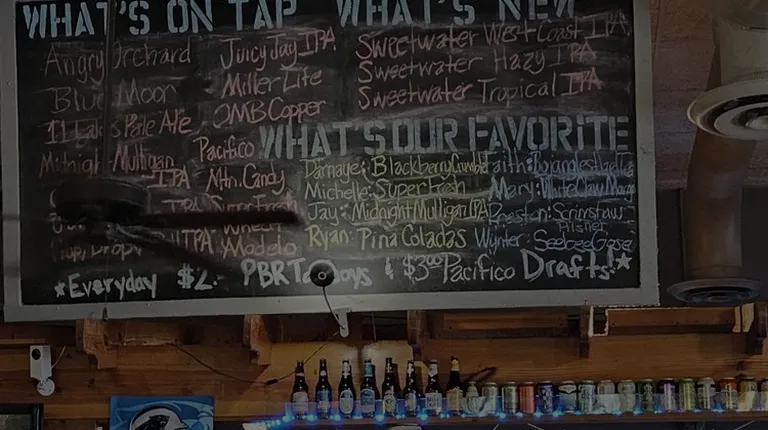 WHAT'S ON TAP
Angry Orchard
Blue Moon
Pale Ale
Midnight Mulligan
IPA
Juicy Jay IPA
Miller Lite
OMB Copper
Pacifico
Mtn. Candy
Super Fresh
Wheat
Modelo
IPA
WHAT'S NEW
Sweetwater West Coast IPA
Sweetwater Hazy IPA
Sweetwater Tropical IPA
WHAT'S OUR FAVORITE
Darnaye: Blackberry Crumble
Michelle: Super Fresh
Jay: Midnight Mulligan IPA
Ryan: Pina Coladas
Faith:
Mary: White Claw Mango
Preston: Scrimshaw
Pilsner
Wynter:
*Everyday $2.- PBR Tallboys & $3.00 Pacifico Drafts!*